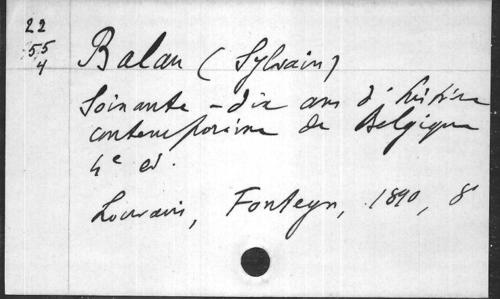 22
55
4
Balau (Sylvain)
Soixante-dix ans d'histoire
contemporaine de Belgique
4e éd.
Louvain, Fonteyn, 1890, 8°